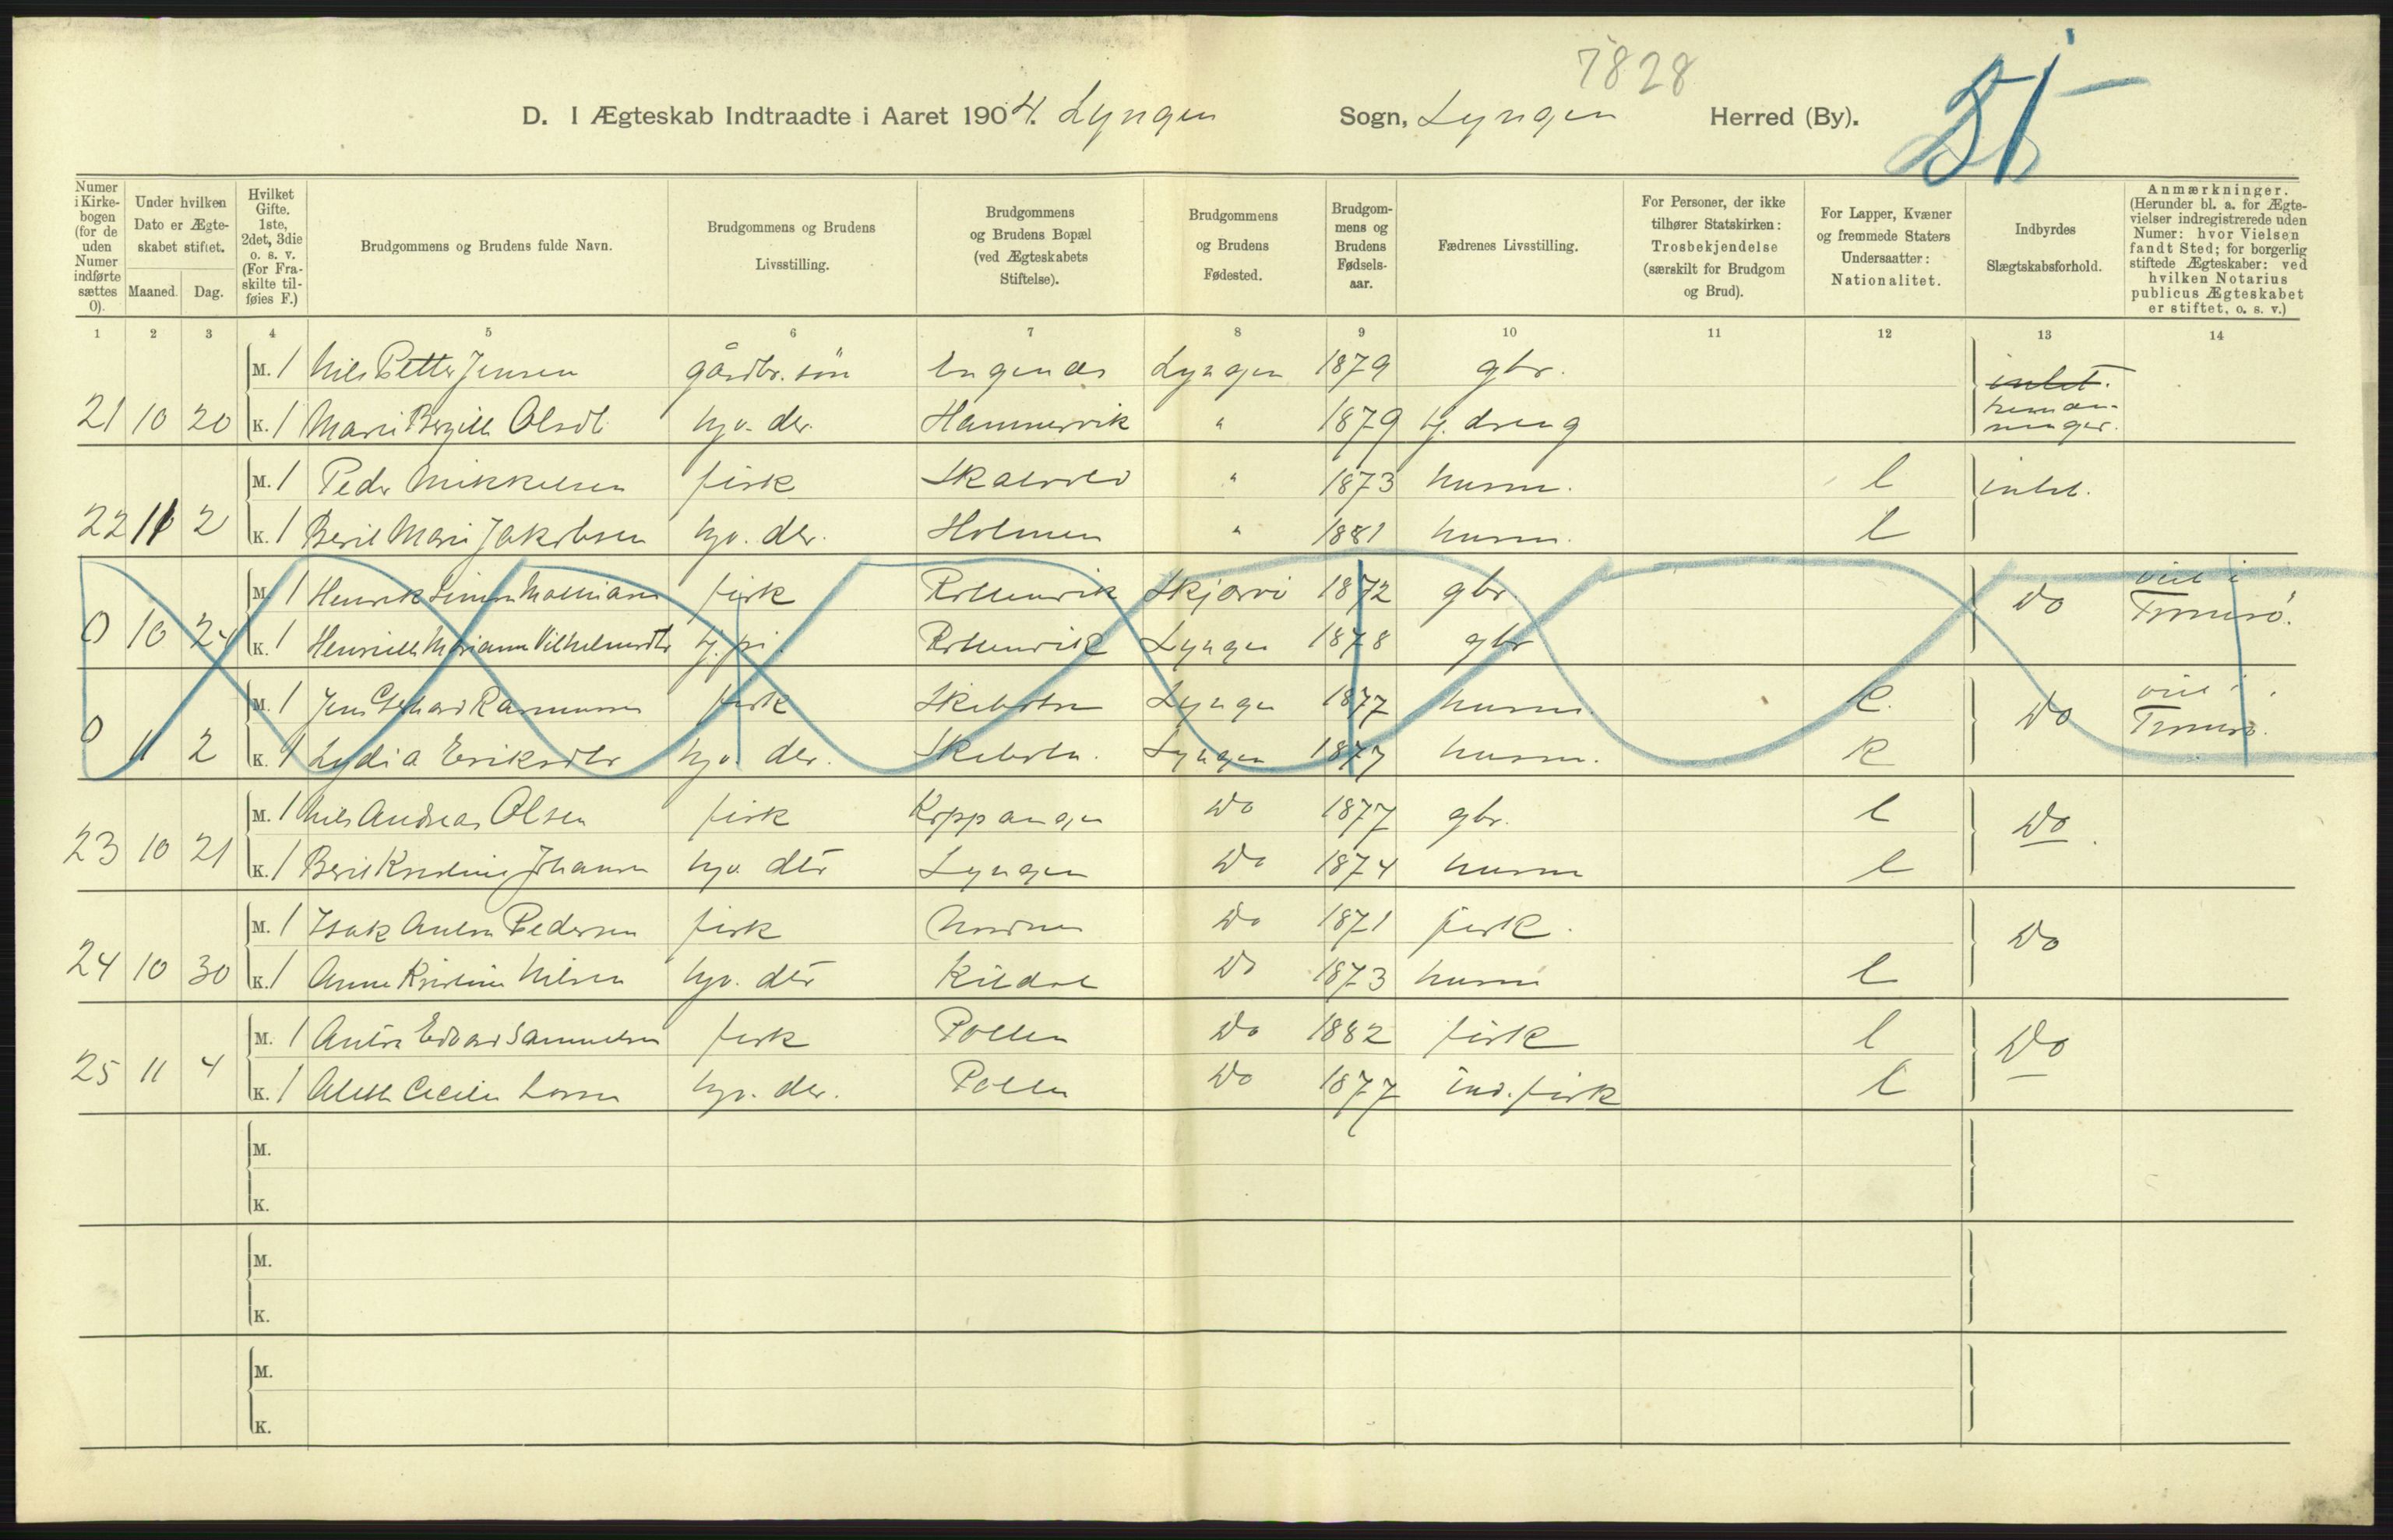 7828
D. I Ægteskab Indtraadte i Aaret 1904. Lyngen Sogn, Lyngen Herred (By).
Numer i Kirkebogen (for de uden Numer indførte sættes 0).
Under hvilken Dato er Ægteskabet stiftet.
Maaned. Dag.
Hvilket Gifte. 1ste, 2det, 3die o. s. v. (For Fraskilte tilføies F.)
Brudgommens og Brudens fulde Navn.
Brudgommens og Brudens Livsstilling.
Brudgommens og Brudens Bopæl (ved Ægteskabets Stiftelse).
Brudgommens og Brudens Fødested.
Brudgommens og Brudens Fødselsaar.
Fædrenes Livsstilling.
For Personer, der ikke tilhører Statskirken: Trosbekjendelse (særskilt for Brudgom og Brud).
For Lapper, Kvæner og fremmede Staters Undersaatter: Nationalitet.
Indbyrdes Slægtskabsforhold.
Anmærkninger. (Herunder bl. a. for Ægtevielser indregistrerede uden Numer: hvor Vielsen fandt Sted; for borgerlig stiftede Ægteskaber: ved hvilken Notarius publicus Ægteskabet er stiftet, o. s. v.)
1 2 3 4 5 6 7 8 9 10 11 12 13 14
M. 1 Nils Petter Jensen gårdbr. søn Lyngen 1879 gbr. intet.
21 10 20 K. 1 Marie Bergitte Olsdt. Hammervik " 1879 tj. dreng
M. 1 Peder Mikkelsen fisk " 1873 husm. l intet.
22 11 2 K. 1 Berit Marie Jakobsen Holmen " 1881 husm. l
M. 1 Henrik fisk Rottenvik Skjervø 1872 gbr. Do viet i Tromsø.
0 10 24 K. 1 Henriette Marianne Vilhelmsdtr tj. pi. Rottenvik Lyngen 1878 gbr
M. 1 Jens Gerhard Rasmussen fisk Skibotn Lyngen 1877 husm. k. Do viet i Tromsø.
0 11 2 K. 1 Lydia Eriksdtr Skibotn. Lyngen 1877 husm. k
M. 1 Nils Andreas Olsen fisk Koppangen Do 1877 gbr. l Do.
23 10 21 K. 1 Berit Kristine Johansen Lyngen Do 1874 husm l
M. 1 Isak Anton Pedersen fisk Do 1871 fisk. Do
24 10 30 K. 1 Anne Kristine Nilsen Kildal Do 1873 husm l
M. 1 Anton Edvard Samuelsen fisk Pollen Do 1882 fisk l Do
25 11 4 K. 1 Aleth Cecilie Pollen Do 1877 ind. fisk l
M.
K.
M.
K.
M.
K.